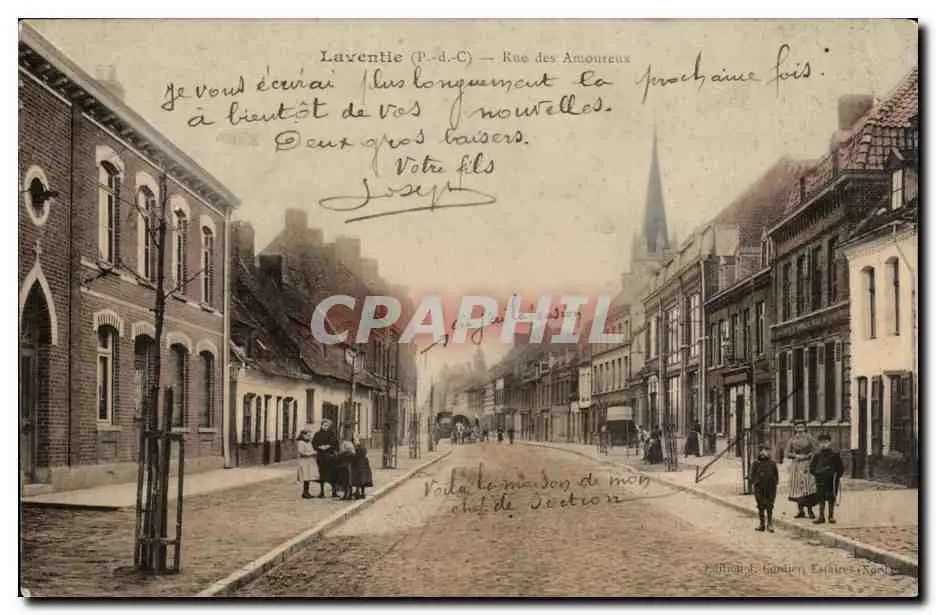 Laventie (P.-d.-C) — Rue des Amoureux
Je vous écrirai plus longuement la prochaine fois.
à bientôt de vos nouvelles.
Deux gros baisers.
Votre fils
Joseph
CAPHILA
Voila la maison de mon
chef de Section